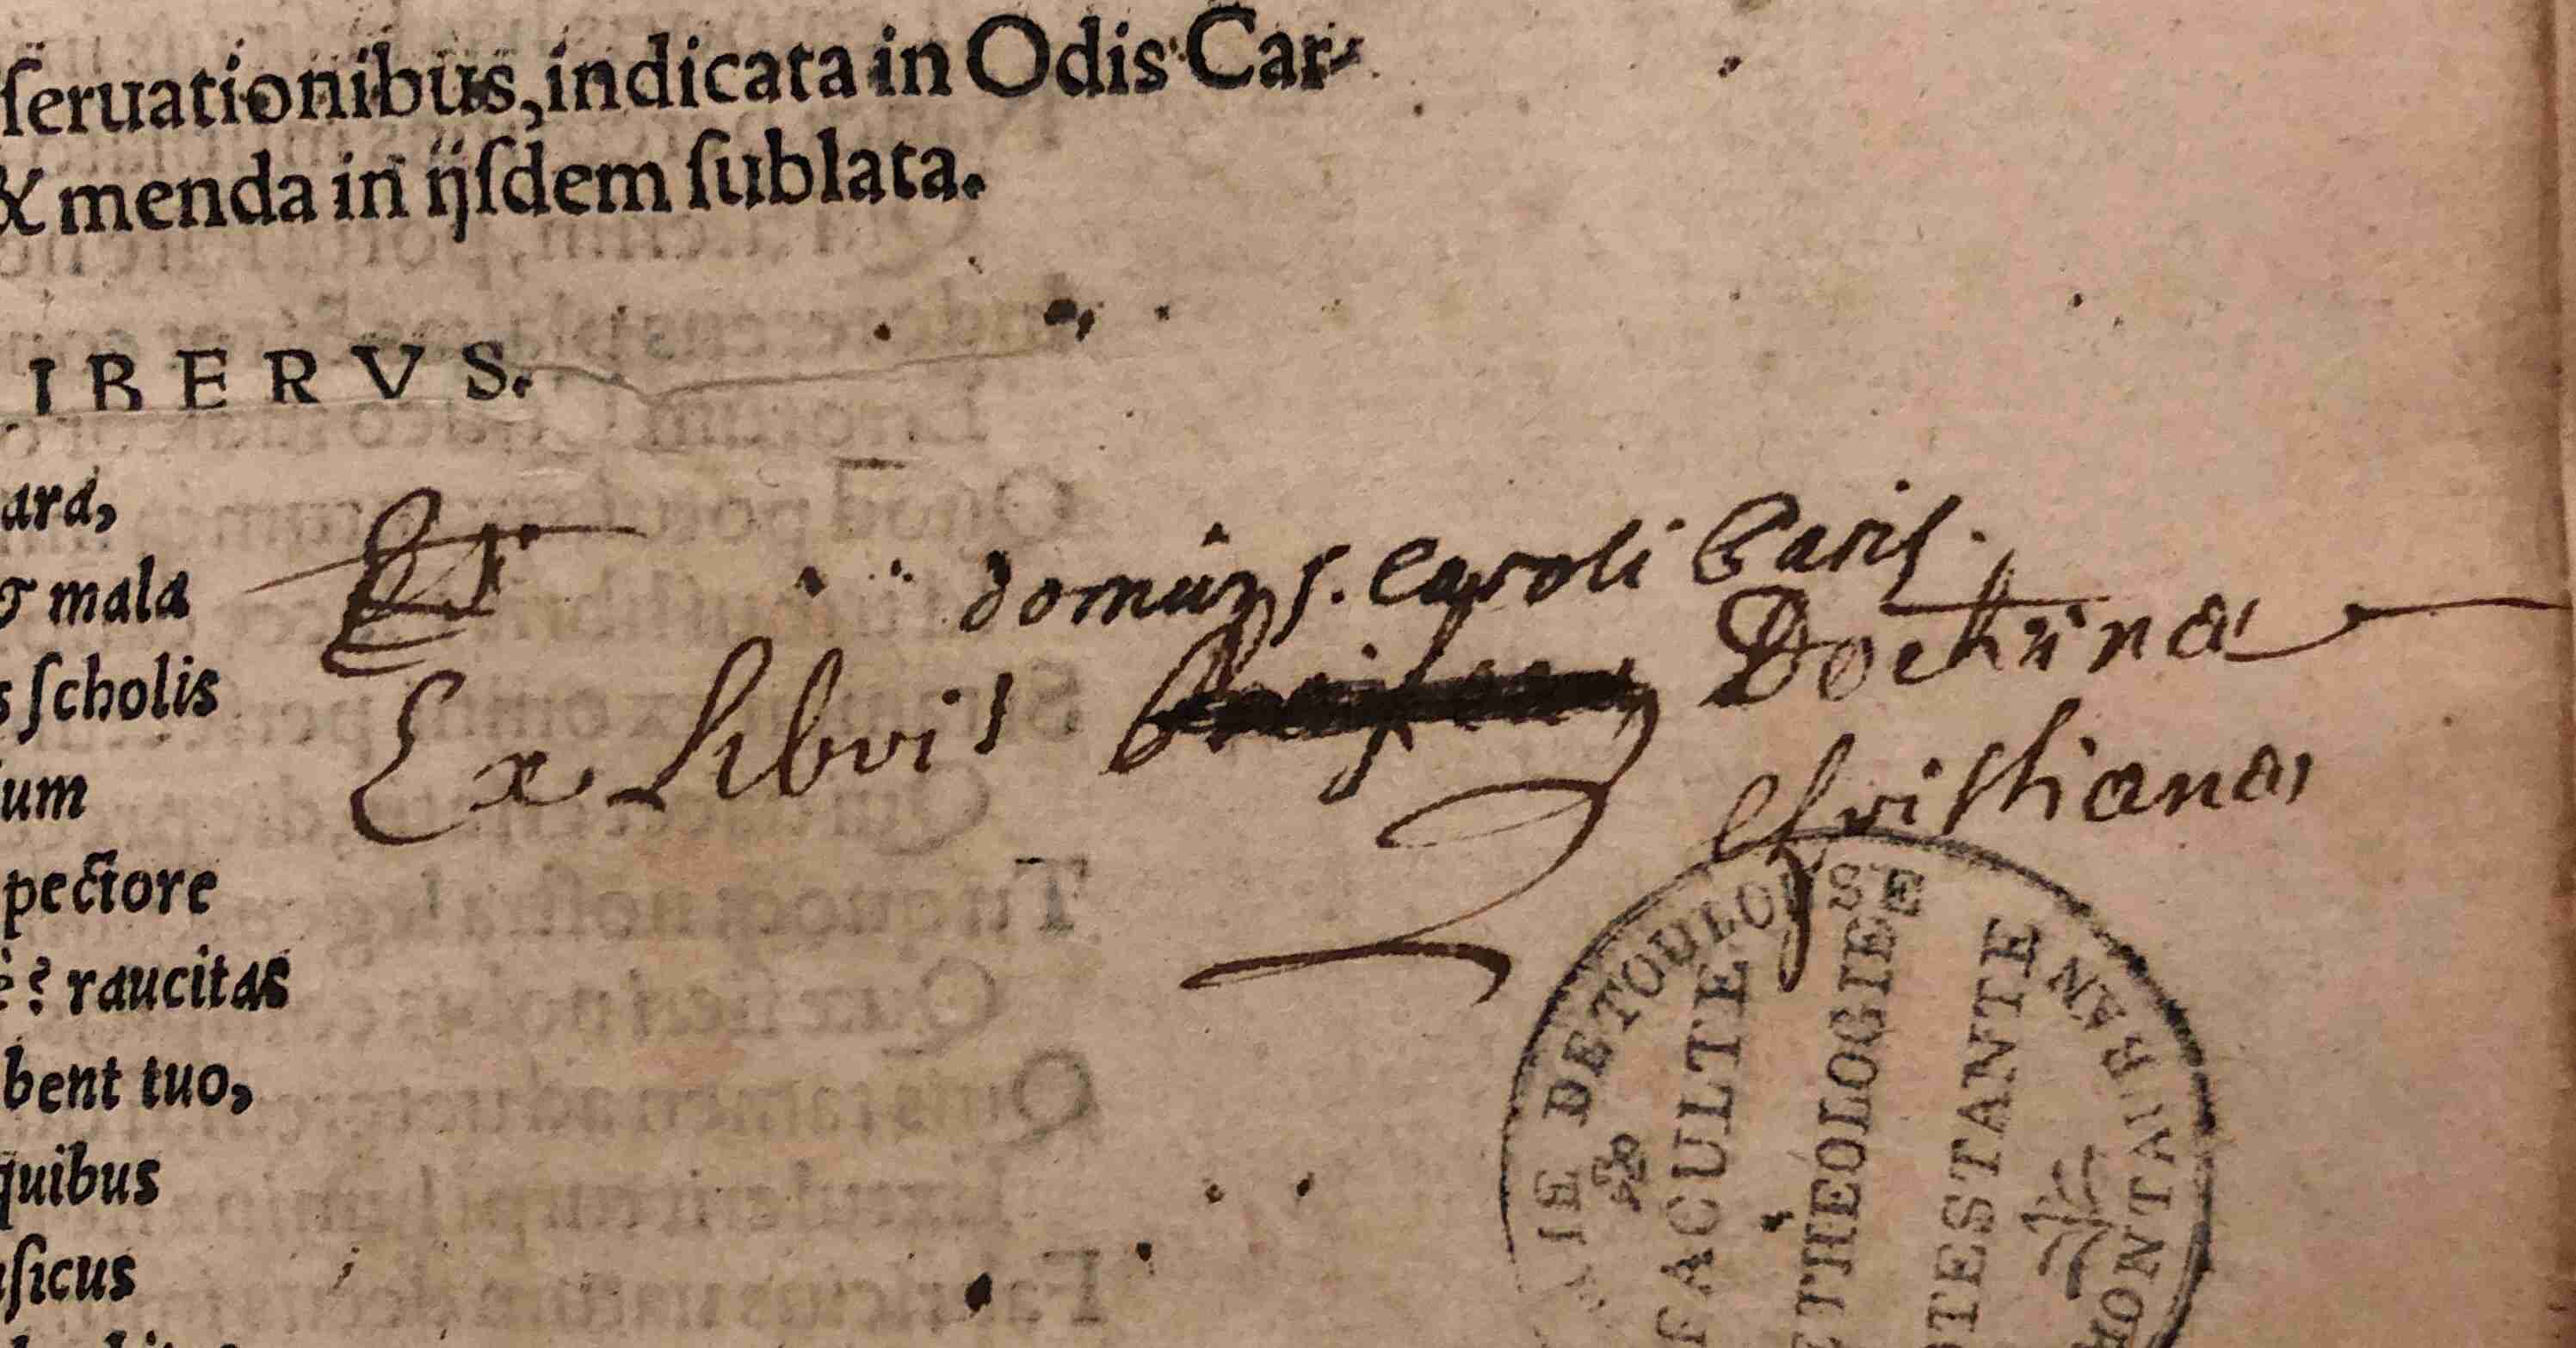 ſeruationibus, indicata in Odis Car-
& menda in ijſdem ſublata.
IBERVS.
ara,
mala
s ſcholis
um
pectore
? raucitas
bent tuo,
quibus
ſicus
domus s. Caroli Paris.
Ex Libris Doctrinæ
Christianæ
DE TOULOUSE
FACULTE
THEOLOGIE
TESTANTE
MONTAUBAN